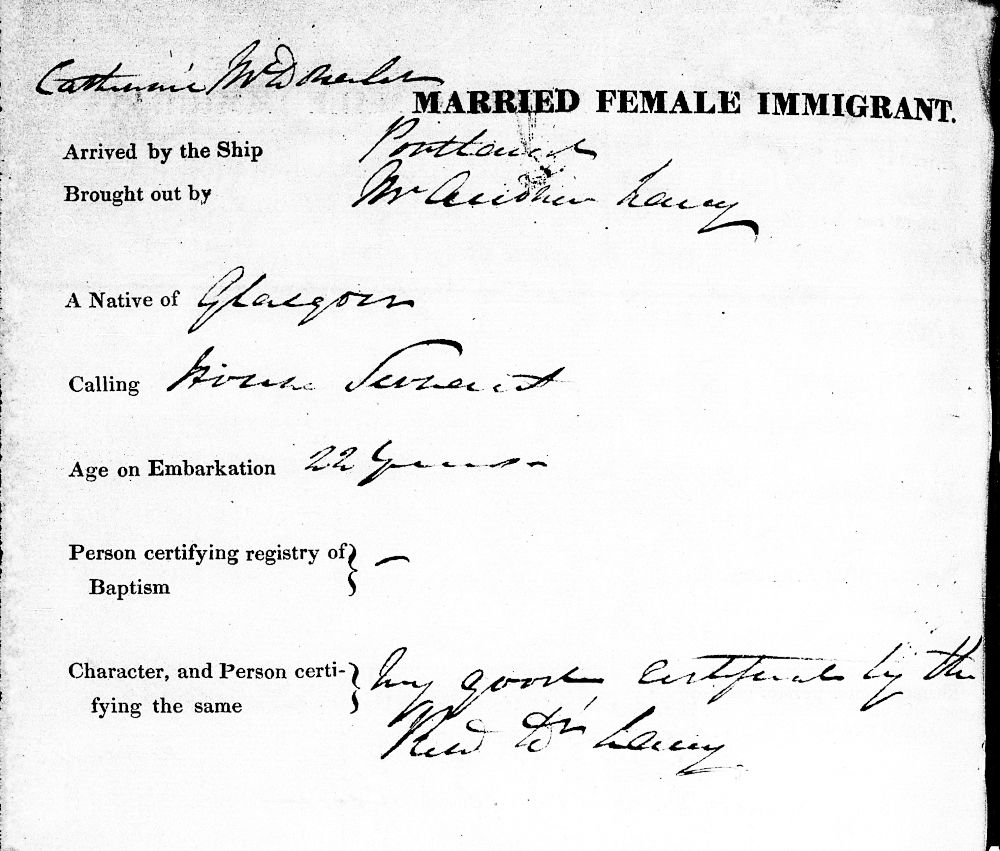 Catherine McDonald
MARRIED FEMALE IMMIGRANT.
Arrived by the Ship Portland
Brought out by Mr Andrew Lang
A Native of Glasgow
Calling House Servant
Age on Embarkation 22 Years
Person certifying registry of } –
Baptism
Character, and Person certi- } Very good certificate by the
fying the same Revd Dr Lang